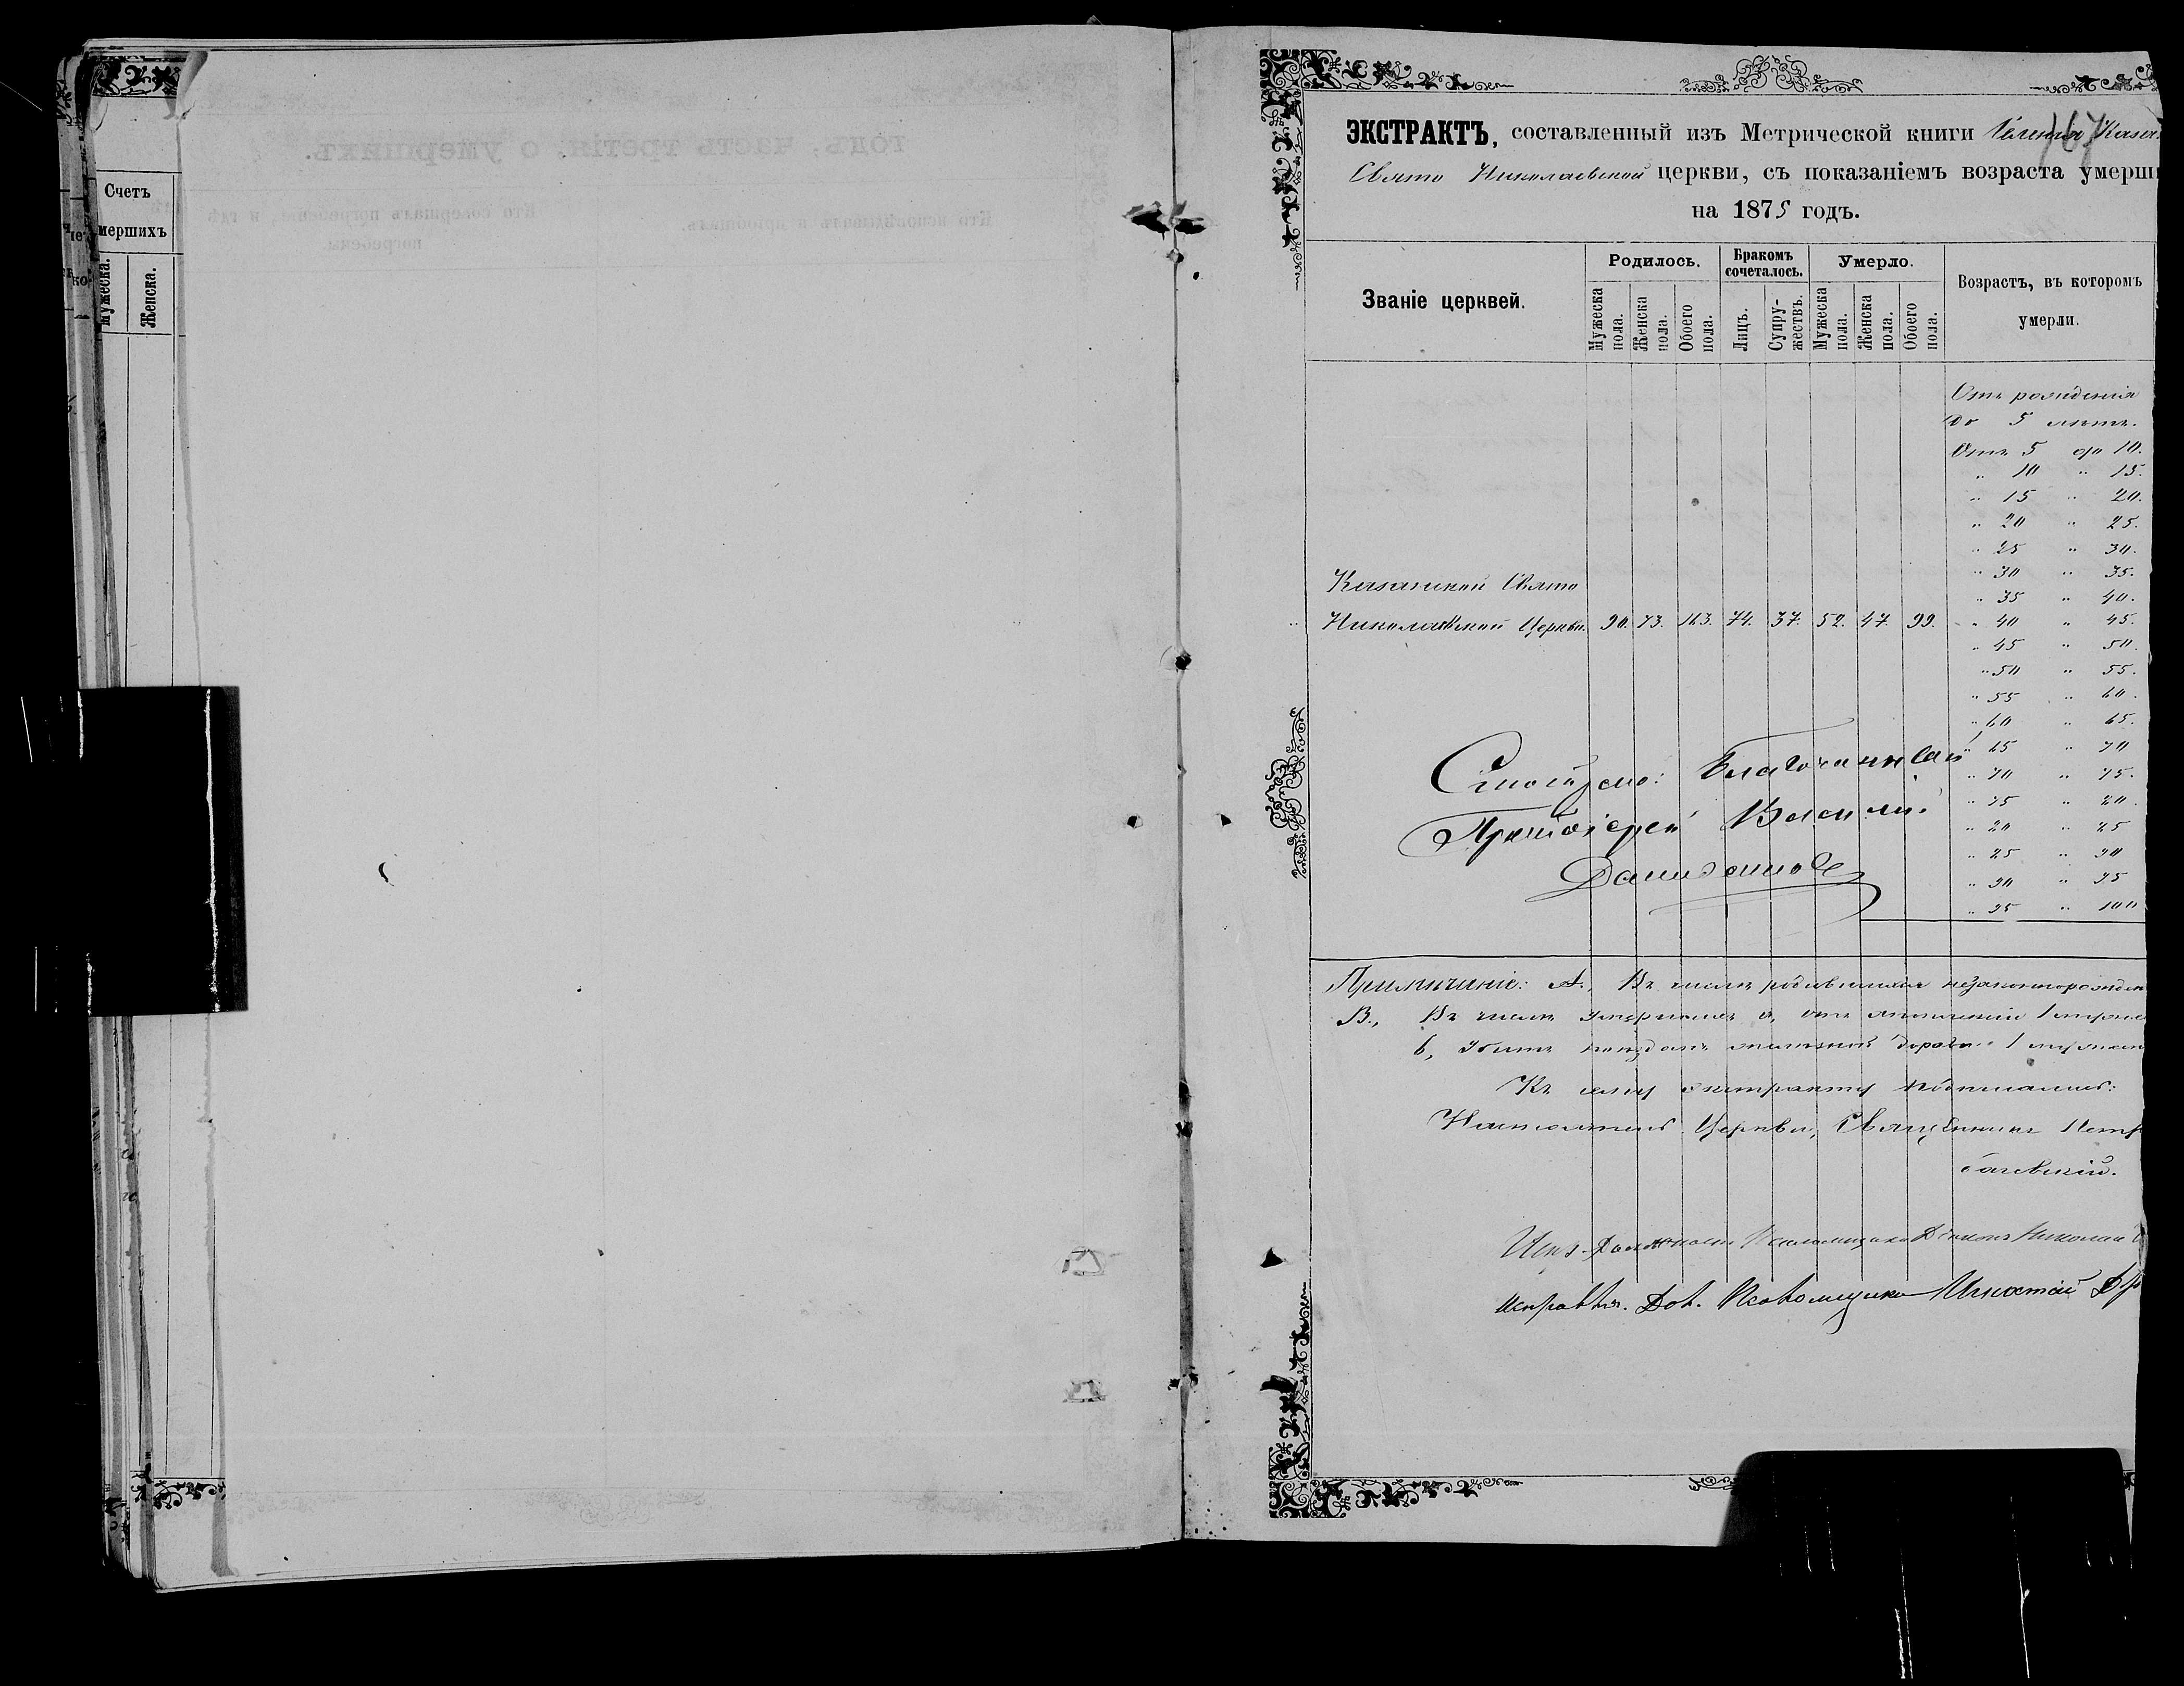 Счетъ
мершихъ
Мужеска.
Женска.
167
ЭКСТРАКТЪ, составленный изъ Метрической книги
Свято Николаевской церкви, съ показаніемъ возраста умерш
на 1875 годъ.
Званіе церквей.
Родилось.
Бракомъ
сочеталось.
Умерло.
Возрастъ, въ которомъ
умерли.
Мужеска пола.
Женска пола.
Обоего пола.
Лицъ.
Супружествъ.
Мужеска пола.
Женска пола.
Обоего пола.
Отъ рожденія
до 5 лѣтъ.
Отъ 5 до 10.
" 10 " 15.
" 15 " 20.
" 20 " 25.
" 25 " 30.
" 30 " 35.
Свято
" 35 " 40.
Николаевской Церкви. 90. 73. 163. 74. 37. 52. 47. 99.
" 40 " 45.
" 45 " 50.
" 50 " 55.
" 55 " 60.
" 60 " 65.
" 65 " 70
" 70 " 75.
" 75 " 80.
" 80 " 85
" 85 " 90
" 90 " 95
" 95 " 100
Благочинный
Протоіерей Василій
Примѣчаніе: А., Въ числѣ родившихся незаконнорожден
В., Въ числѣ умершихъ а, отъ 1 муже
б, желѣзной дороги 1 мужеск
Къ сему экстракту подписались:
Настоятель Церкви, Священникъ Петр
Испр. Должность Псаломщика Николай
Исправл. Дол. Псаломщика